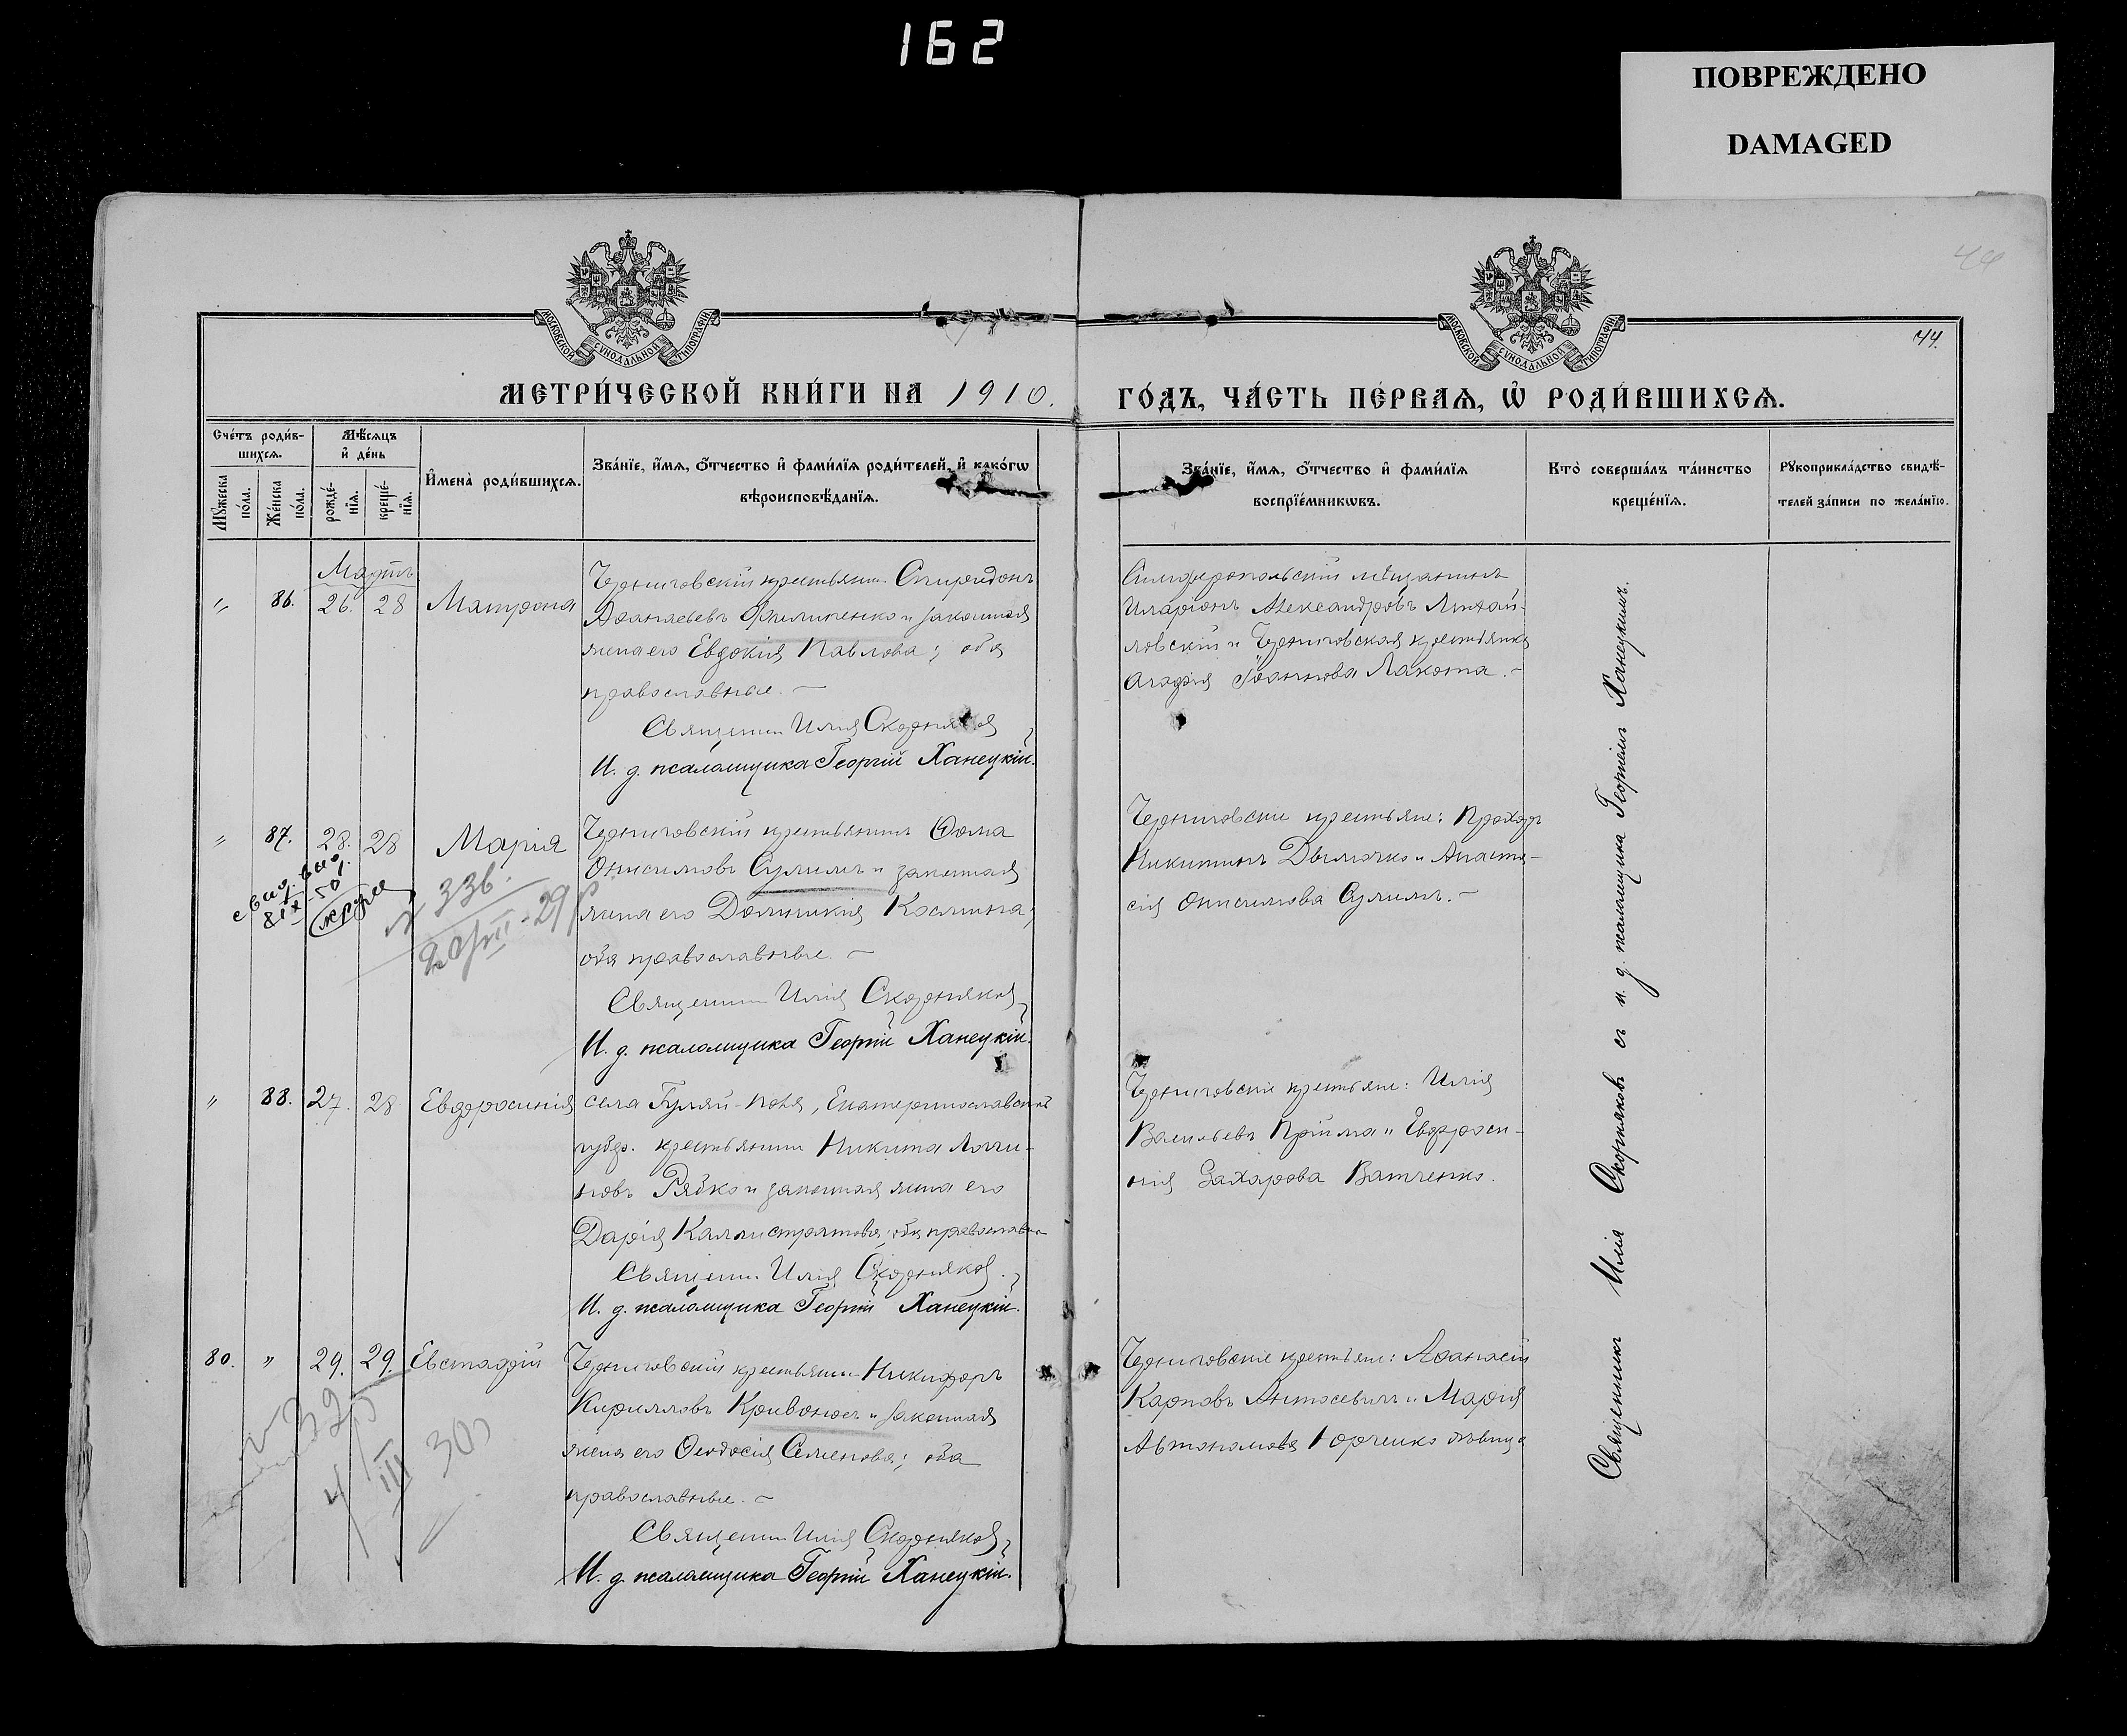 162
ПОВРЕЖДЕНО
DAMAGED
44
МОСКОВСКОЙ СѴНОДАЛЬНОЙ ТИПОГРАФІИ
МОСКОВСКОЙ СѴНОДАЛЬНОЙ ТИПОГРАФІИ
44.
МЕТРИ́ЧЕСКОЙ КНИ́ГИ НА 1910. ГО́ДЪ, ЧА́СТЬ ПЕ́РВАѦ, Ѡ҆ РОДИ́ВШИХСѦ.
Сче́тъ роди́в-
шихсѧ.
Мꙋжеска по́ла.
Же́нска по́ла.
Мѣ́сѧцъ
и҆ де́нь
рожде́-
нїѧ.
креще́-
нїѧ.
И҆мена̀ роди́вшихсѧ.
Зва́нїе, и҆́мѧ, ѻ҆́тчество и҆ фами́лїѧ роди́телей, и҆ како́гѡ
вѣроисповѣ́данїѧ.
Зва́нїе, и҆́мѧ, ѻ҆́тчество и҆ фами́лїѧ
воспрїе́мникѡвъ.
Кто̀ соверша́лъ та́инство
креще́нїѧ.
Рꙋкоприкла́дство свидѣ́-
телей за́писи по жела́нїю.
Мартъ
" 86. 26. 28 Матрона
Черниговскій крестьянинъ Спиридонъ
Аѳанасьевъ Филипенко и законная
жена его Евдокія Павлова; оба
православные. —
Священник Илія Скорняков
И. д. псаломщика Георгій Ханецкій.
Симферопольскій мѣщанинъ
Иларіонъ Александровъ Михай-
ловскій и Черниговская крестьянка
Агафія Іоаннова Лакота. —
" 87. 28. 28 Марія
Черниговскій крестьянинъ Ѳома
Онисимовъ Сулимъ и законная
жена его Домникія Космина;
оба православные. —
Священник Илія Скорняков
И. д. псаломщика Георгій Ханецкій.
336.
20/VII-29
Черниговскіе крестьяне: Прохоръ
Никитинъ Дымочко и Анаста-
сія Онисимова Сулимъ. —
" 88. 27. 28 Евфросинія
села Гуляй-Поля, Екатеринославской
губер. крестьянин Никита Логги-
новъ Рябко и законная жена его
Дарія Каллистратова; оба православн
Священ. Илія Скорняков.
И. д. псаломщика Георгій Ханецкій.
Черниговскіе крестьяне: Илія
Васильевъ Прійма и Евфроси-
нія Захарова Ватченко.
80. " 29. 29. Евстафій
Черниговскій крестьянин Никифоръ
Кирилловъ Кривоносъ и законная
жена его Ѳеодосія Семенова; оба
православные. —
Священ Илія Скорняков
И. д. псаломщика Георгій Ханецкій.
325
4/III 30
Черниговскіе крестьяне: Аѳанасій
Карповъ и Марія
Автономова дѣвица
Священникъ Илія Скорняковъ съ и. д. псаломщика Георгіемъ Ханецкимъ.